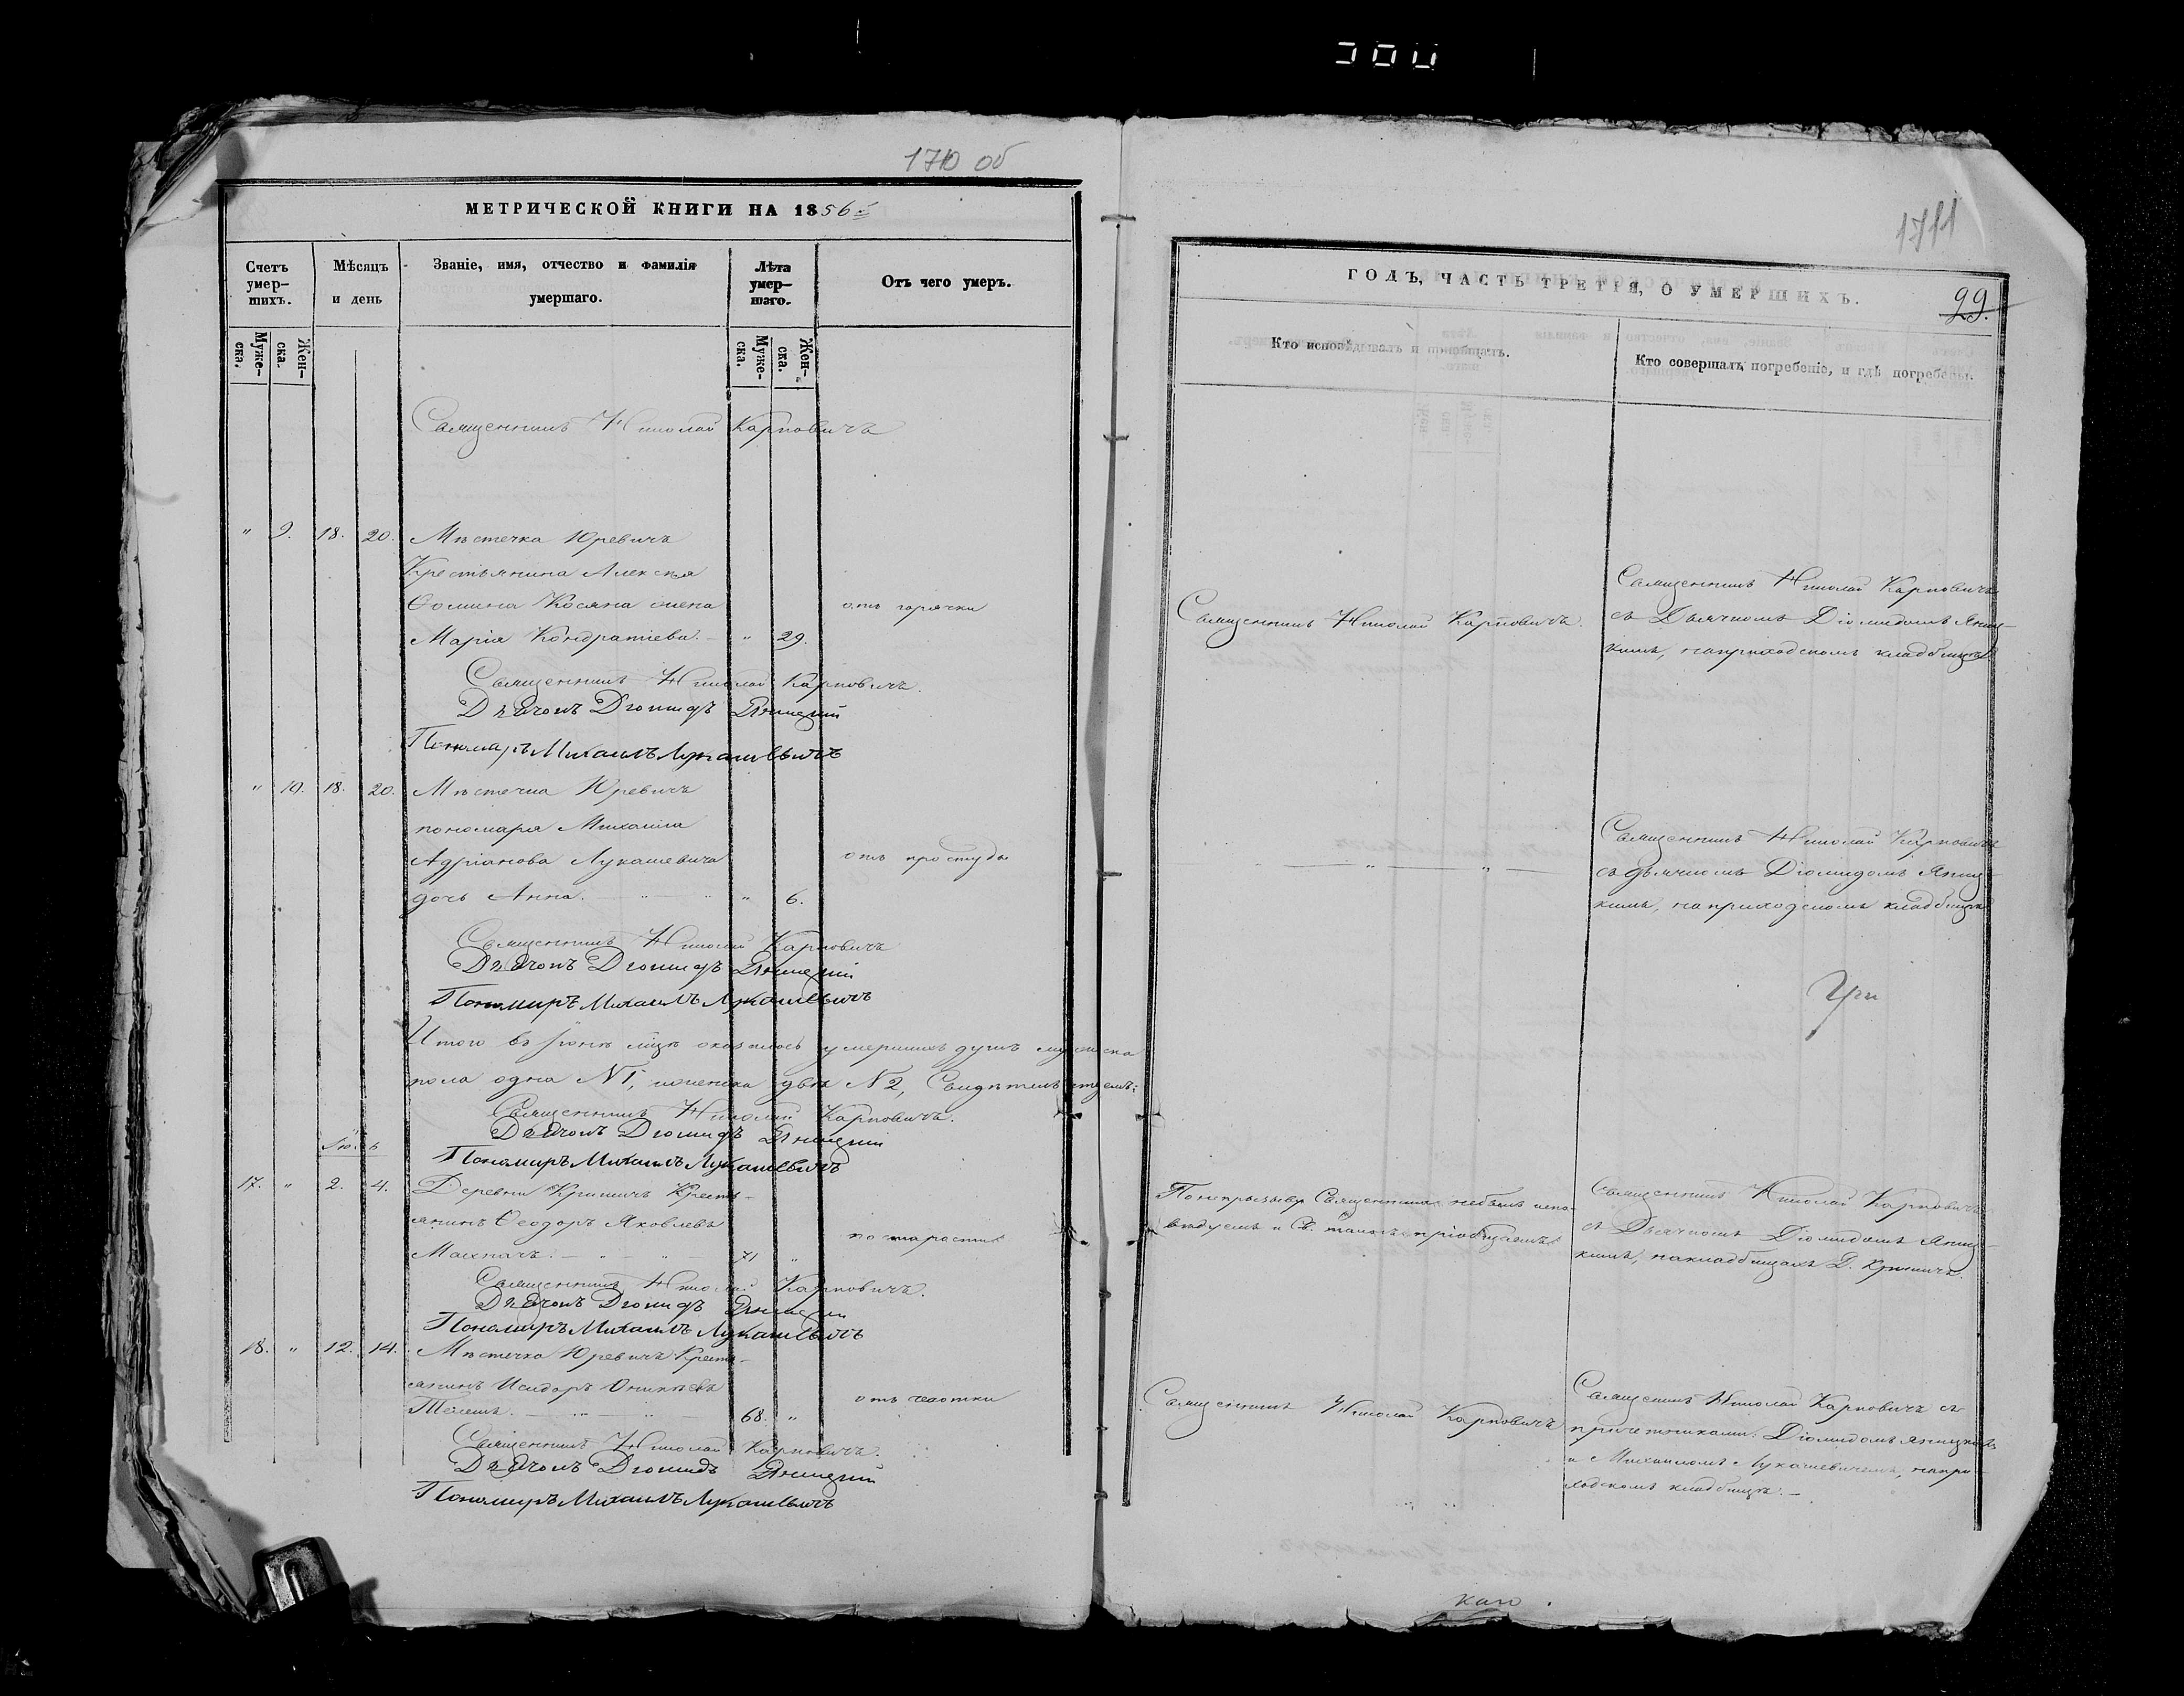 1710 об
МЕТРИЧЕСКОЙ КНИГИ НА 1856й
Счетъ умер-шихъ.
Мѣсяцъ и день
Званіе, имя, отчество и фамилія умершаго.
Лѣта умер-шаго.
Отъ чего умеръ.
Муже-ска.
Жен-ска.
Муже-ска.
Жен-ска.
Священникъ Николай Карповичъ
" 9. 18. 20. Мѣстечка Юревичъ
Крестьянина Алексѣя
Ѳомина Косяна жена
отъ горячки
Марія Кондратіева. - " 29.
Священникъ Николай Карповичъ.
Дьячокъ Діомидъ Яницкій
Пономаръ Михаилъ Лукашевичъ
" 10. 18. 20. Мѣстечка Юревичъ
пономаря Михаила
Адріанова Лукашевича
отъ простуды
дочь Анна. " 6.
Священникъ Николай Карповичъ
Дьячокъ Діомидъ Яницкій
Пономаръ Михаилъ Лукашевичъ
Итого въ Іюнѣ мцѣ оказалось умершихъ душъ мужеска
пола одна №1, и женска двѣ №2, Свидѣтельствуемъ:
Священникъ Николай Карповичъ.
Дьячокъ Діомидъ Яницкій
Пономаръ Михаилъ Лукашевичъ
Іюль
17. " 2. 4. Деревни Кришичъ Кресть-
янинъ Ѳеодоръ Яковлевъ
по старости
71 "
Священникъ Николай Карповичъ.
Дьячокъ Діомидъ Яницкій
Пономаръ Михаилъ Лукашевичъ
18. " 12. 14. Мѣстечка Юревичъ Кресть-
янинъ Исидоръ
отъ чахотки
68. "
Священникъ Николай Карповичъ.
Дьячокъ Діомидъ Яницкій
Пономаръ Михаилъ Лукашевичъ
1711
ГОДЪ, ЧАСТЬ ТРЕТІЯ, О УМЕРШИХЪ.
99.
Кто исповѣдывалъ и пріобщалъ.
Кто совершалъ погребеніе, и гдѣ погребены.
Священникъ Николай Карповичъ.
Священникъ Николай Карповичъ
съ Дьячкомъ Діомидомъ Яниц-
кимъ, на приходскомъ кладбищѣ
" "
Священникъ Николай Карповичъ
съ дьячкомъ Діомидомъ Яниц-
кимъ, на приходскомъ кладбищѣ
По непризыву Священника небылъ испо-
вѣдуемъ и Св. таинъ пріобщаемъ
Священникъ Николай Карповичъ
съ Дьячкомъ Діомидомъ Яниц-
кимъ, на кладбищахъ Д. Кришичъ.
Священникъ Николай Карповичъ
Священникъ Николай Карповичъ съ
причетниками: Діомидомъ Яницкимъ
и Михаиломъ Лукашевичемъ, на при-
ходскомъ кладбищѣ. -